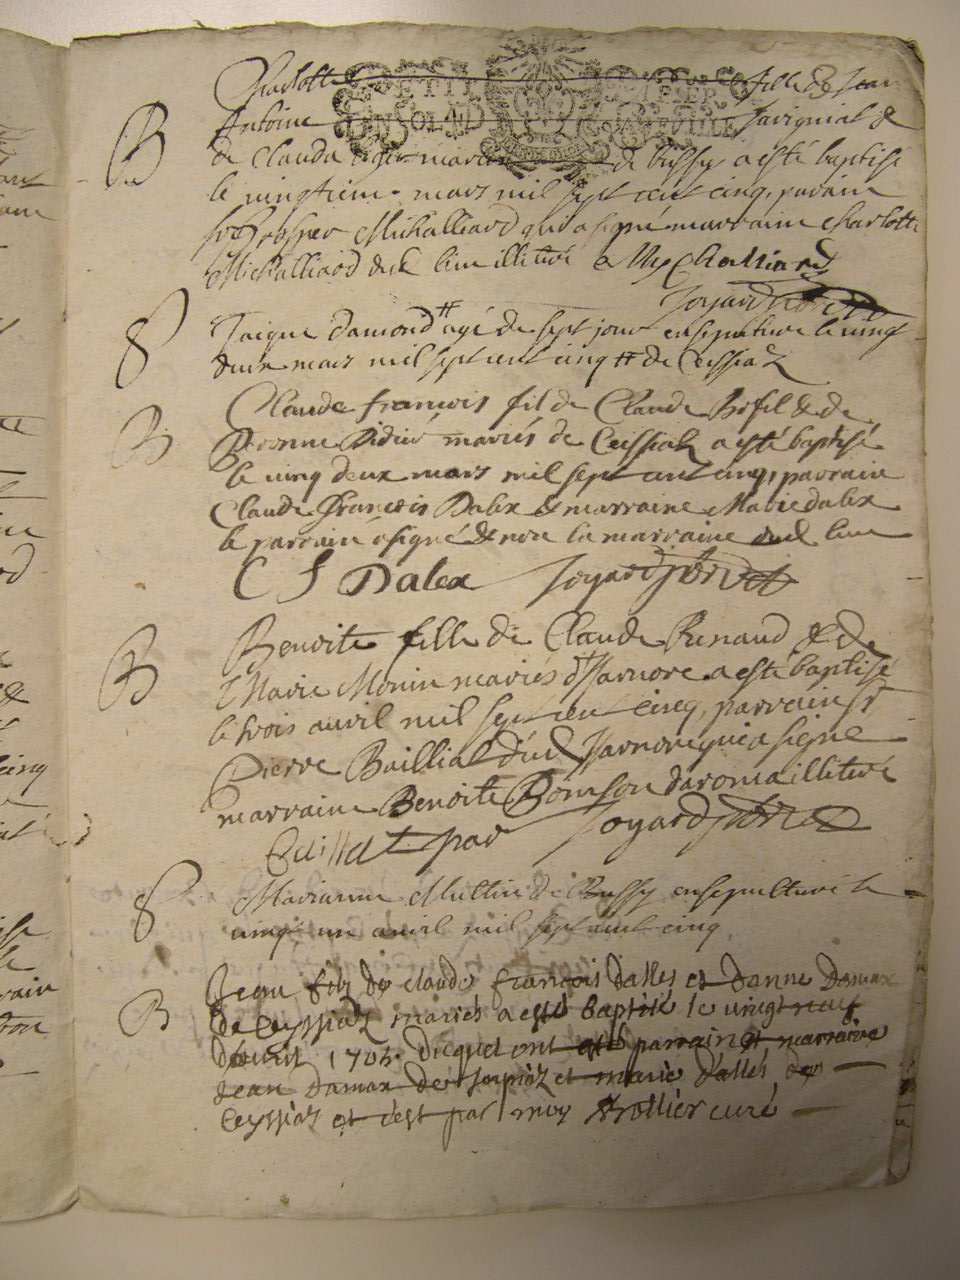 Charlotte fille de Jean
PETIT PAPIER
Antoine Savigniat &
B
de Clauda mariés de bussy a esté baptisé
le vingtiem. mars mil sept cent cinq, parain
sr Prosper Michalliard qui a signé marraine Charlotte
Michalliard dud. lieu illitéré Michalliard
Joyard
S
Jaique damond agé de sept jour ensepulturé le vingt
deux mars mil sept cent cinq de Ceissiat
B
Claude francois fil de Claude & de
Peronne Didier mariés de Ceissiat a esté baptisé
le vinq deux mars mil sept cent cinq, parrain
Claude François Dalex & marraine Marie dalex
le parrain a signé & non la marraine dud. lieu
C f Dalex Joyard
B
Benoite fille de Claude Renaud & de
Marie Monin mariés d'Isarnore a esté baptisé
le trois auril mil sept cent cinq, parrain sr
Pierre Bailliat dud. Isarnore qui a signé
marraine Benoite illiteré
Joyard
S
Marianne de Bussy ensepulturé le
vingt un auril mil sept cent cinq
B
Jean fils de claude françois dalles et danne Damax
de Ceyssiaz mariés a esté baptisé le vingt neuf
dauril 1705. duquel ont esté parrain et marraine
Jean Damax de et marie dallés de
Ceyssiaz et c'est par moy curé